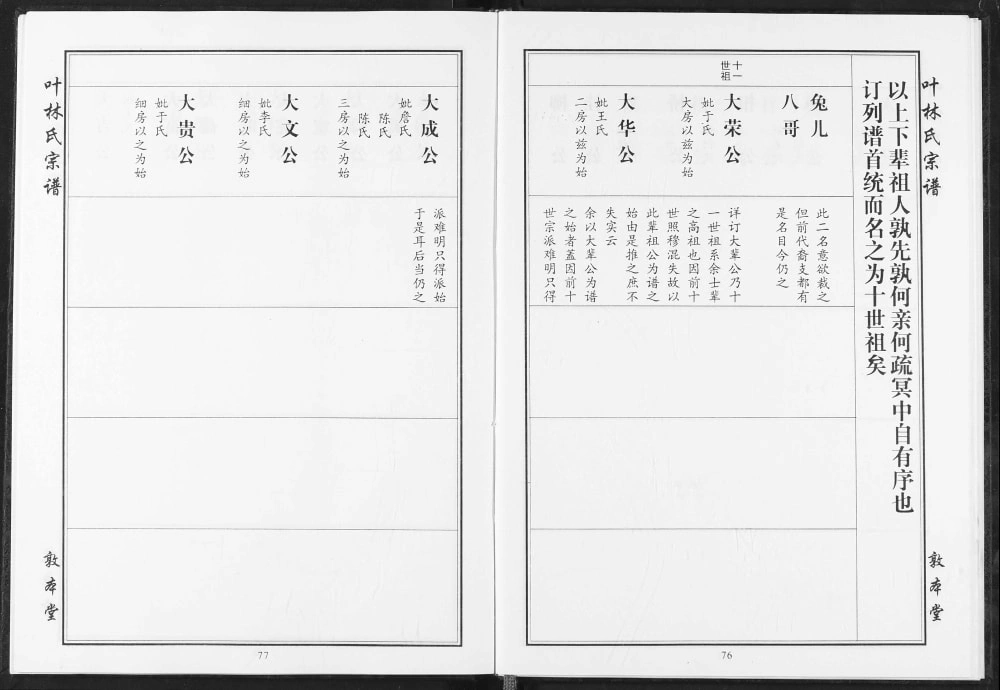 叶林氏宗谱
敦本堂
以上下辈祖人孰先孰何亲何疏冥中自有序也
订列谱首统而名之为十世祖矣
兔儿
八哥
此二名意欲裁之
但前代裔支都有
是名目今仍之
十一
世祖
大荣公
妣于氏
大房以兹为始
详订大辈公乃十
一世祖系余士辈
之高祖也因前十
世照穆混失故以
此辈祖公为谱之
始由是推之庶不
失实云
大华公
妣王氏
二房以兹为始
余以大辈公为谱
之始者盖因前十
世宗派难明只得
76
大成公
妣詹氏
陈氏
陈氏
三房以之为始
派难明只得派始
于是耳后当仍之
大文公
妣李氏
细房以之为始
大贵公
妣于氏
细房以之为始
叶林氏宗谱
敦本堂
77